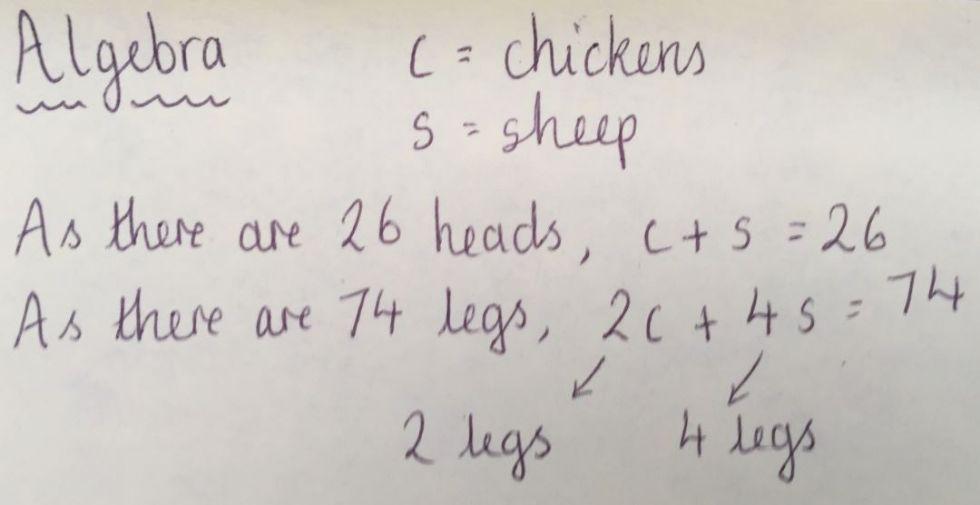 Algebra
c = chickens
s = sheep
As there are 26 heads, c + s = 26
As there are 74 legs, 2c + 4s = 74
2 legs
4 legs